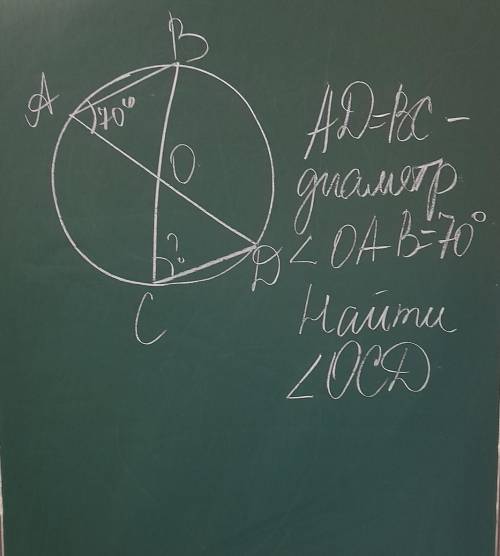 B
A
70°
O
?
D
C
AD=BC -
диаметр
∠OAB=70°
Найти
∠OCD